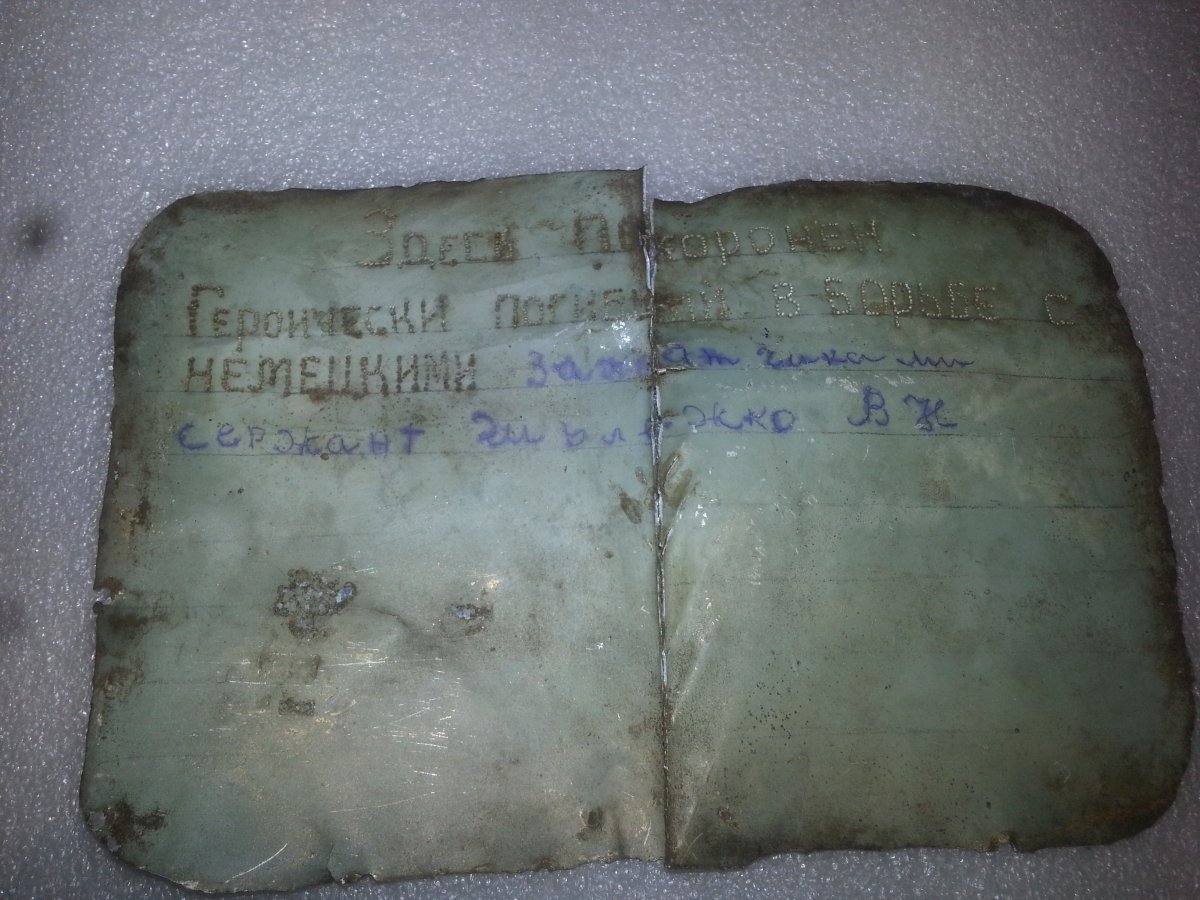 Здесь Похоронен
Героически погибший в борьбе с
немецкими захватчиками
сержант В К